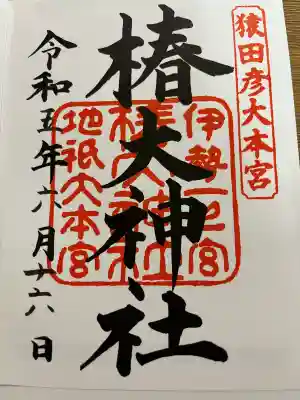 猿田彦大本宮
椿大神社
伊勢一之宮
椿大神社
地祇大本宮
令和五年六月十六日